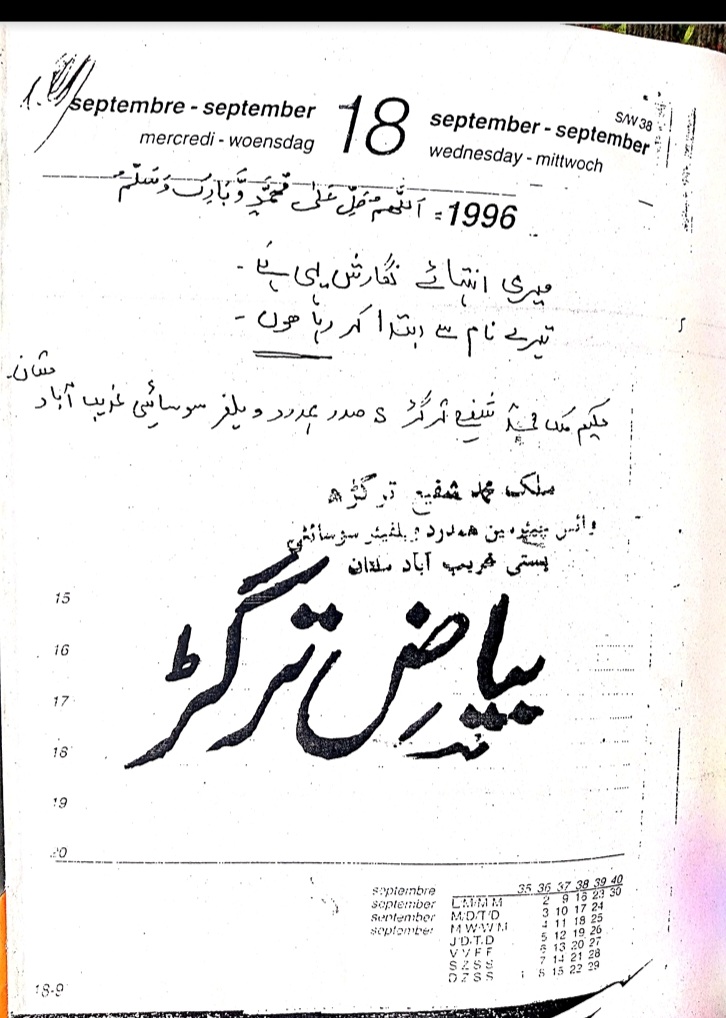 septembre - september 18 september - september S/W 38
mercredi - woensdag wednesday - mittwoch
اَللّٰهُمَّ صَلِّ عَلٰی مُحَمَّدٍ وَّبَارِک وَسَلِّمْ = 1996
میری انتہائے نگارش یہی ہے -
تیرے نام سے ابتدا کر رہا ہوں -
حکیم ملک محمد شفیع ترگڑ صدر ہمدرد ویلفر سوسائٹی غریب آباد
ملتان
ملک محمد شفیع ترگڑھ
وائس چیئرمین ہمدرد ویلفیئر سوسائٹی
بستی غریب آباد ملتان
بیاض ترگڑ
15
16
17
18
19
20
septembre 35 36 37 38 39 40
september L M M M 2 9 16 23 30
september M D T D 3 10 17 24
september M W W M 4 11 18 25
J D T D 5 12 19 26
V V F F 6 13 20 27
S Z S S 7 14 21 28
D Z S S 1 8 15 22 29
18-9